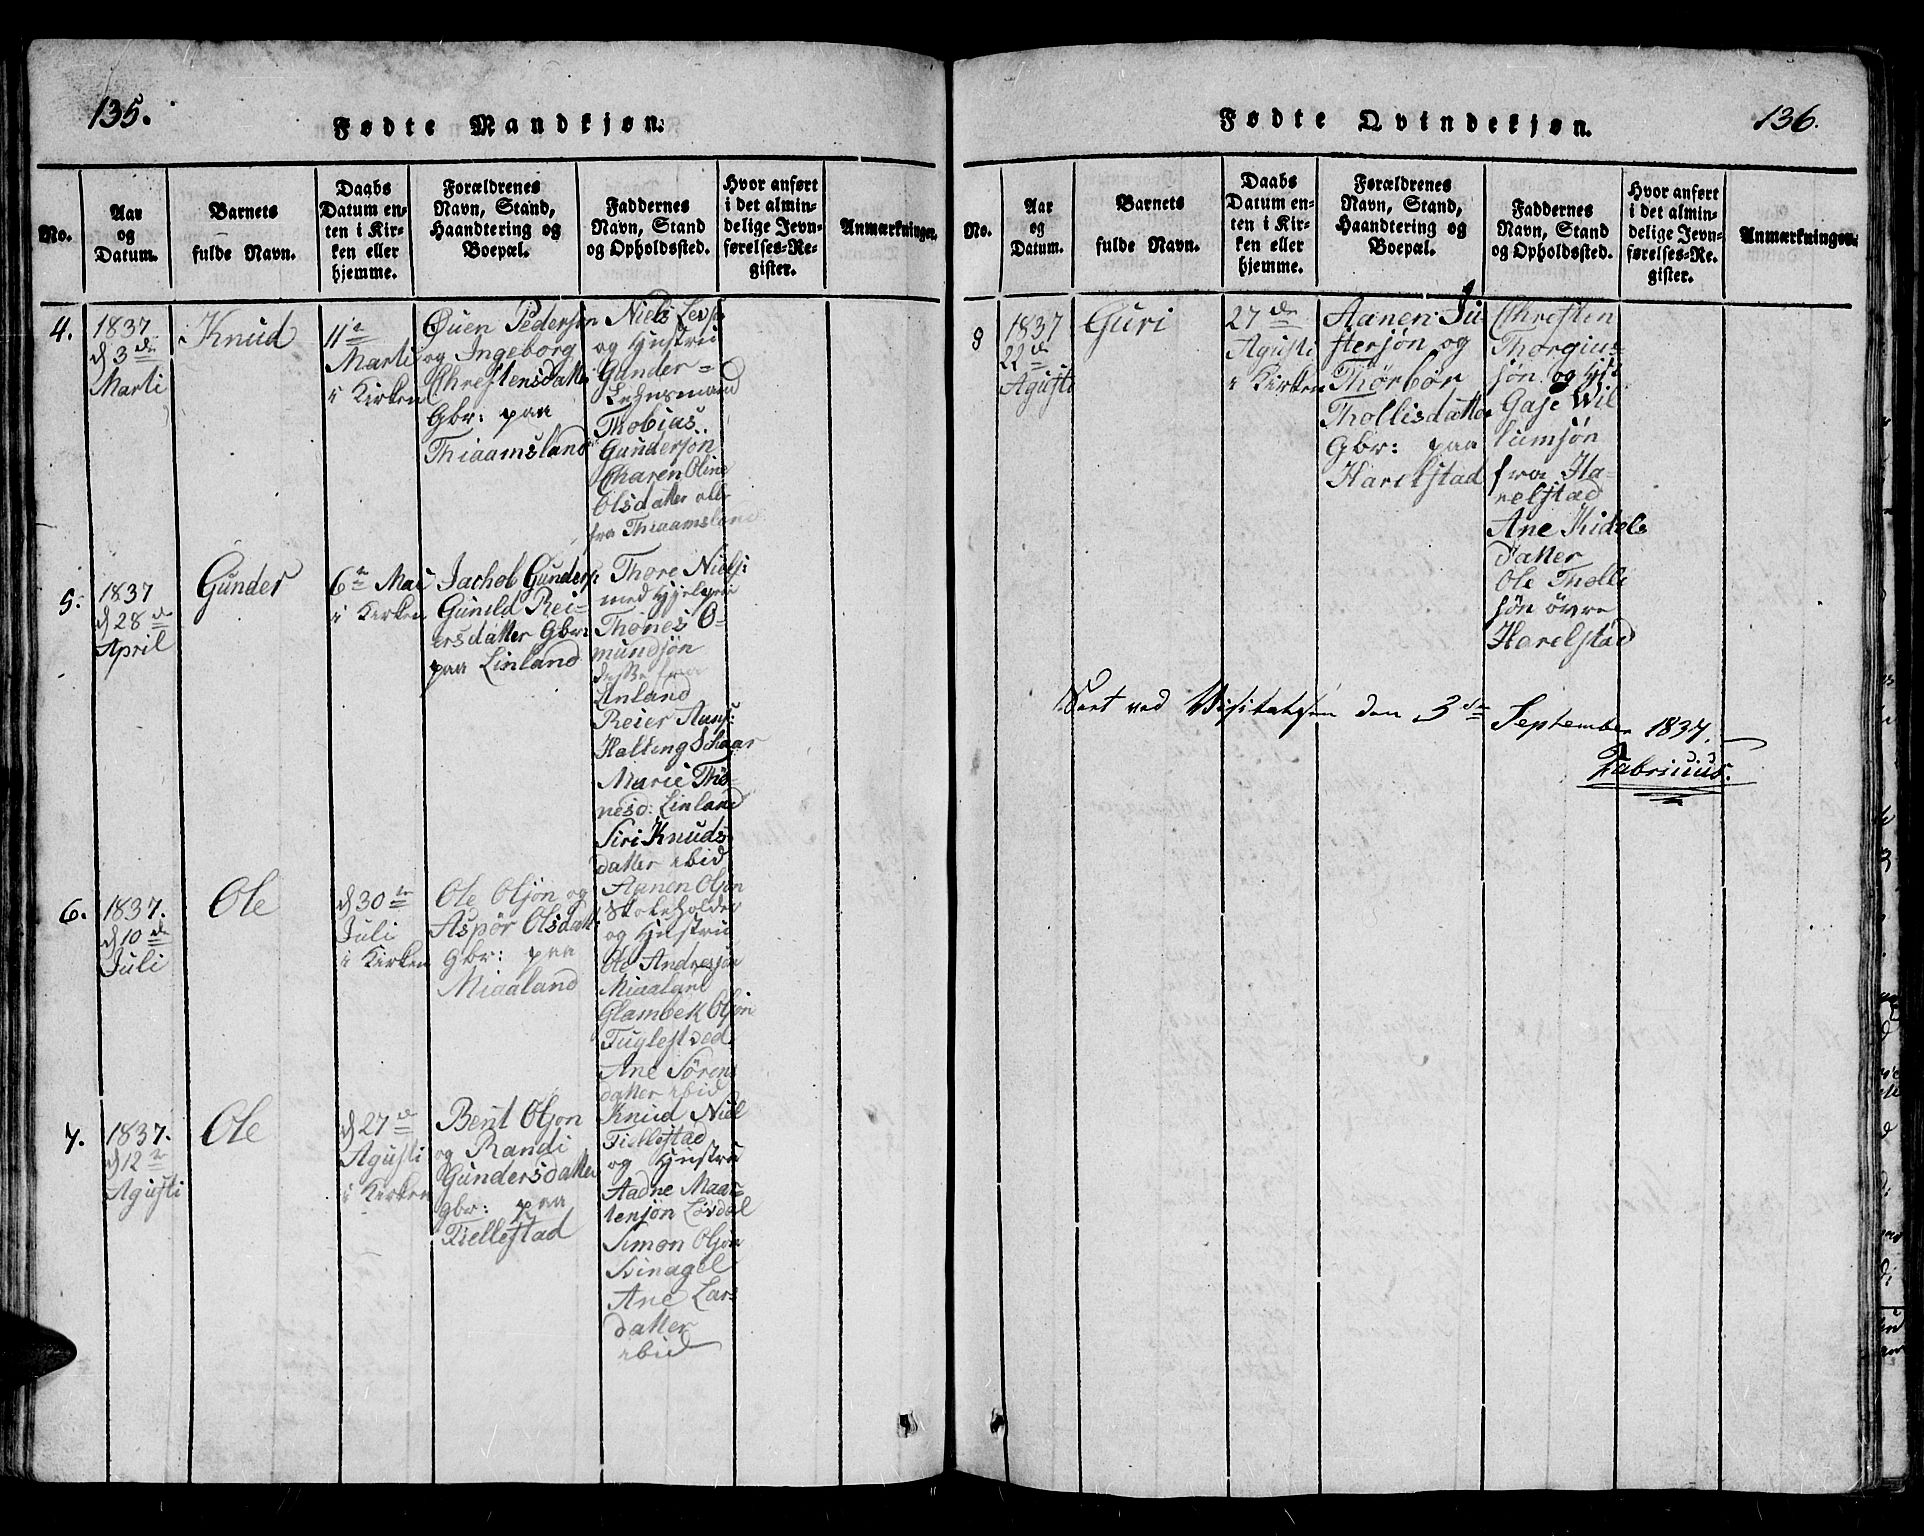 135.
Fødte Mandkjøn.
No.
Aar
og
Datum.
Barnets
fulde Navn.
Daabs
Datum en-
ten i Kir-
ken eller
hjemme.
Forældrenes
Navn, Stand,
Haandtering og
Boepæl.
Faddernes
Navn, Stand
og Opholdssted.
Hvor anført
i det almin-
delige Jevn-
førelses-Re-
gister.
Anmærkninger.
4.
1837
d 3 de
Marti
Knud
11te
Marti
i Kirken
Øuen Pedersøn
og Ingeborg
Chrestensdatter
Gbr: paa
Thiaamsland
Niels
og Hustrue
Gunder
Lehnsmand
Thobias
Gundersøn
Charen Oline
Olsdatter alle
fra Thiaamsland
5.
1837
d 28 de
April
Gunder
6te Mai
i Kirken
Jachob Gunders:
Gunild Rei-
ersdatter Gbr:
paa Linland
Thore Niels:
med
Thones O-
mundsøn
fra
Linland
Reier Aans:
Halling Schaar
Marie Thø-
nesd: Linland
Siri Knuds-
datter ibid
6.
1837.
d 10 de
Juli
Ole
d 30 te
Juli
i Kirken
Ole Olsøn og
Aspør Olsdatt
Gbr: paa
Miaaland
Aanen Olsøn
Skoleholder
og Hustrue
Ole Andresøn
Miaaland
Glambek Olsøn
Fuglestved
Ane Sørens
datter ibid
7.
1837.
d 12 te
Agusti
Ole
d 27 de
Agusti
i Kirken
Bent Olsøn
og Randi
Gundersdatter
gbr: paa
Fiellestad
Knud Niel
Fiellestad
og Hustrue
Aadne Maar-
tensøn Løvdal
Simon Olsøn
Svinagel
Ane Lars
datter
ibid
Fødte Qvindekjøn.
136.
No.
Aar
og
Datum.
Barnets
fulde Navn.
Daabs
Datum en-
ten i Kir-
ken eller
hjemme.
Forældrenes
Navn, Stand,
Haandtering og
Boepæl.
Faddernes
Navn, Stand
og Opholdssted.
Hvor anført
i det almin-
delige Jevn-
førelses-Re-
gister.
Anmærkninger.
8
1837
22 de
Agusti
Guri
27 de
Agusti
i Kirken
Aanen Ju
stersøn og
Thorbør
Thollisdatter
Gbr: paa
Harelstad
Chresten
Thorgiu-
søn og
Gase Wil
lumsøn
fra Ha-
relstad
Ane Kidels
datter
Ole Tholli
søn øvre
Harelstad
Seet ved Visitatsen den 3de September 1837.
Fabricius.